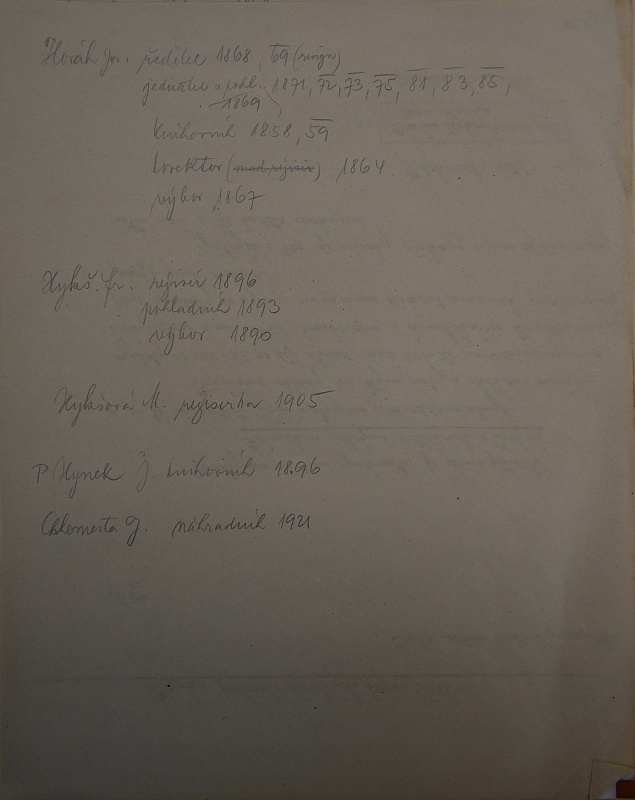 Horák Jos. ředitel 1868, 69 (resign)
jednatel a pokl. 1871, 72, 73, 75, 81, 83, 85,
1869
knihovník 1858, 59
korektor (mad režisér) 1864
výbor 1867
Hykš. Fr. režisér 1896
pokladník 1893
výbor 1890
Hykšová M. režisérka 1905
P Hynek J. knihovník 1896
J. náhradník 1921